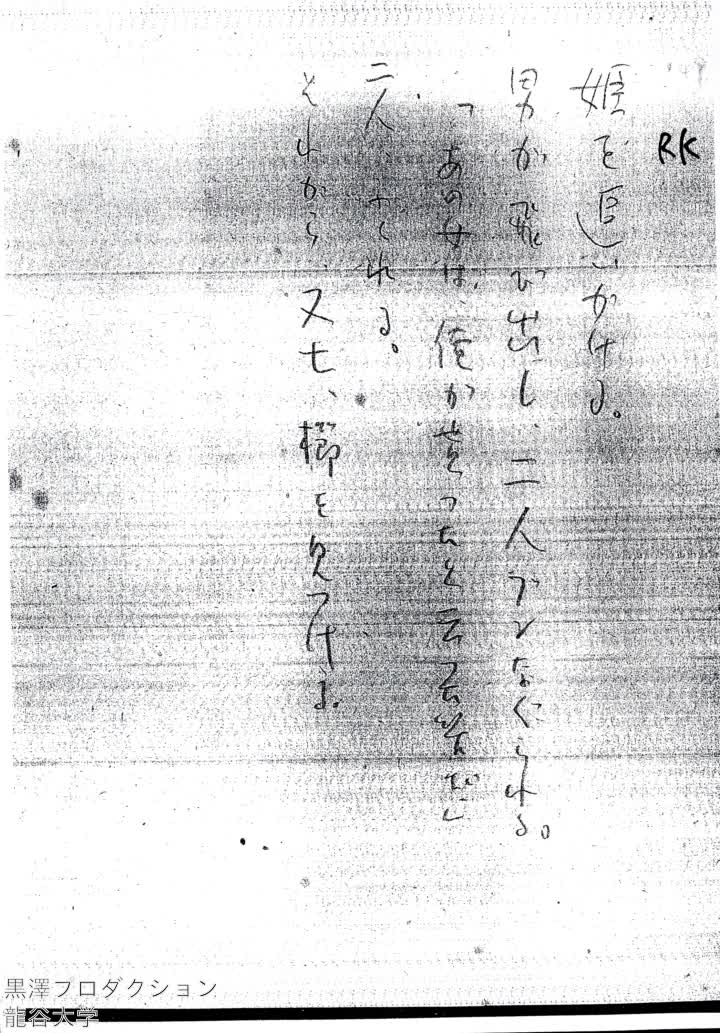 RK
姫を追いかける。
男が飛び出し、二人ブンなぐられる。
「あの女は、俺が貰つたと云つた筈だ」
二人
それから、又七、櫛を見つける。
黒澤プロダクション
龍谷大学